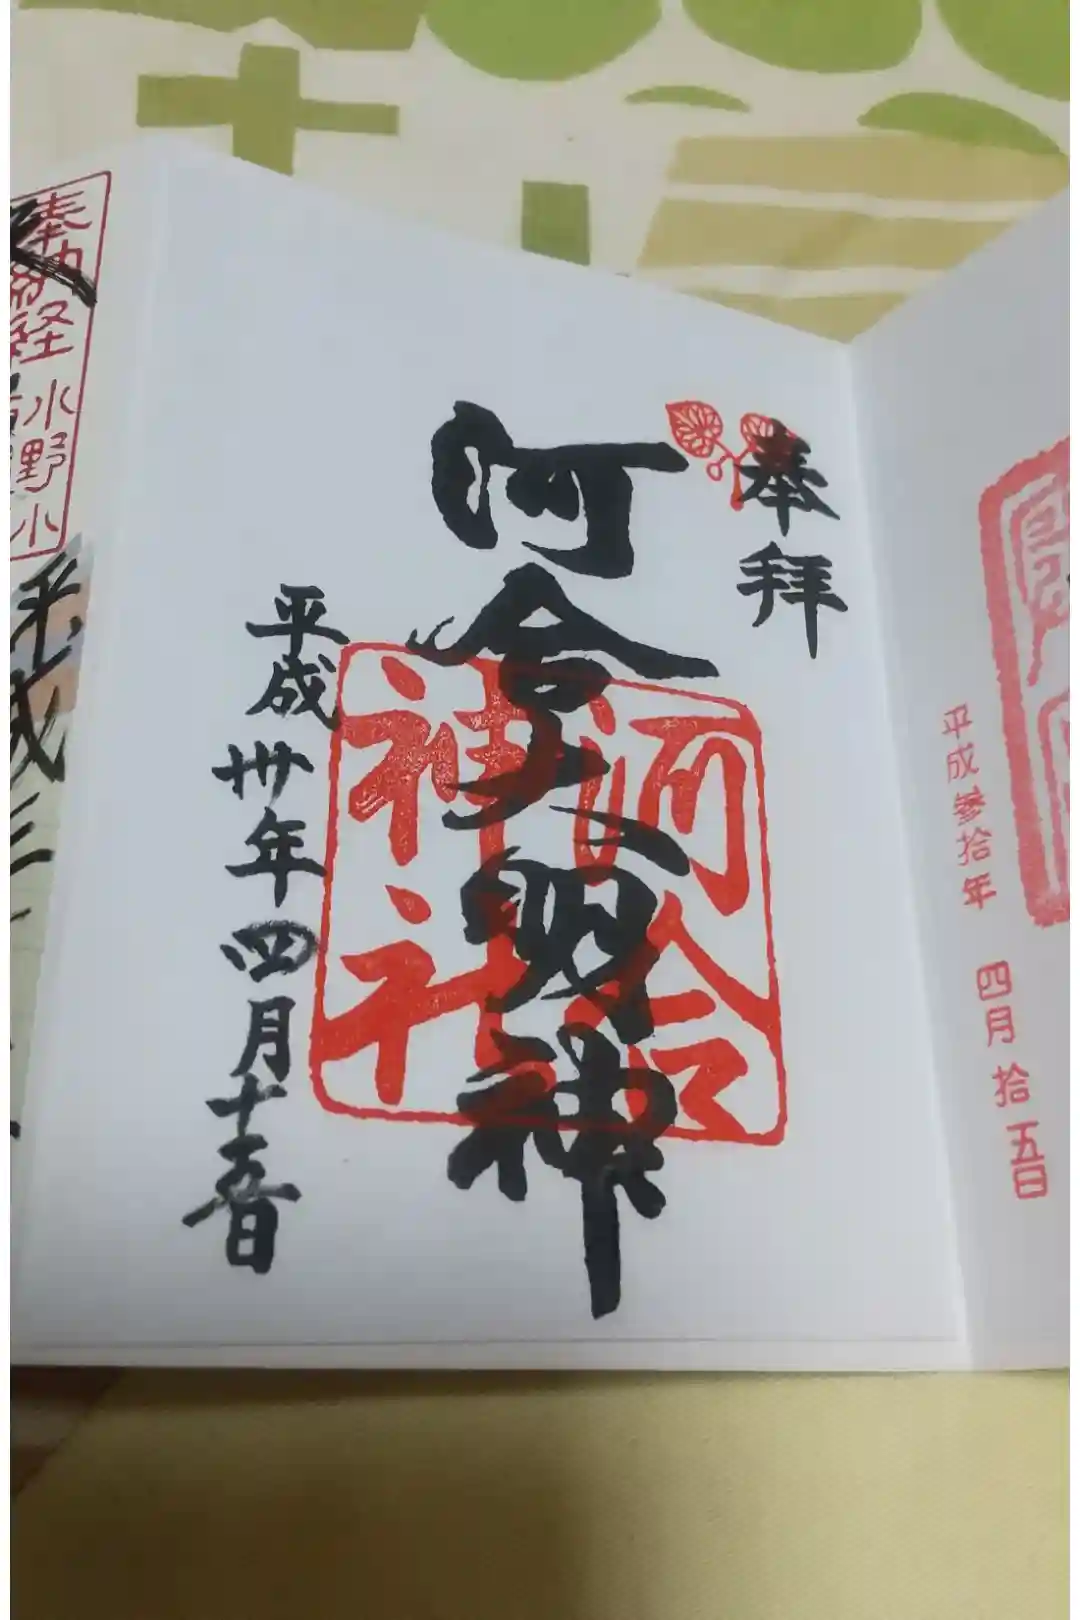 平成参拾年 四月拾五日
奉拝
河合大明神
河合
神社
平成卅年四月十五日
奉納経
平成三